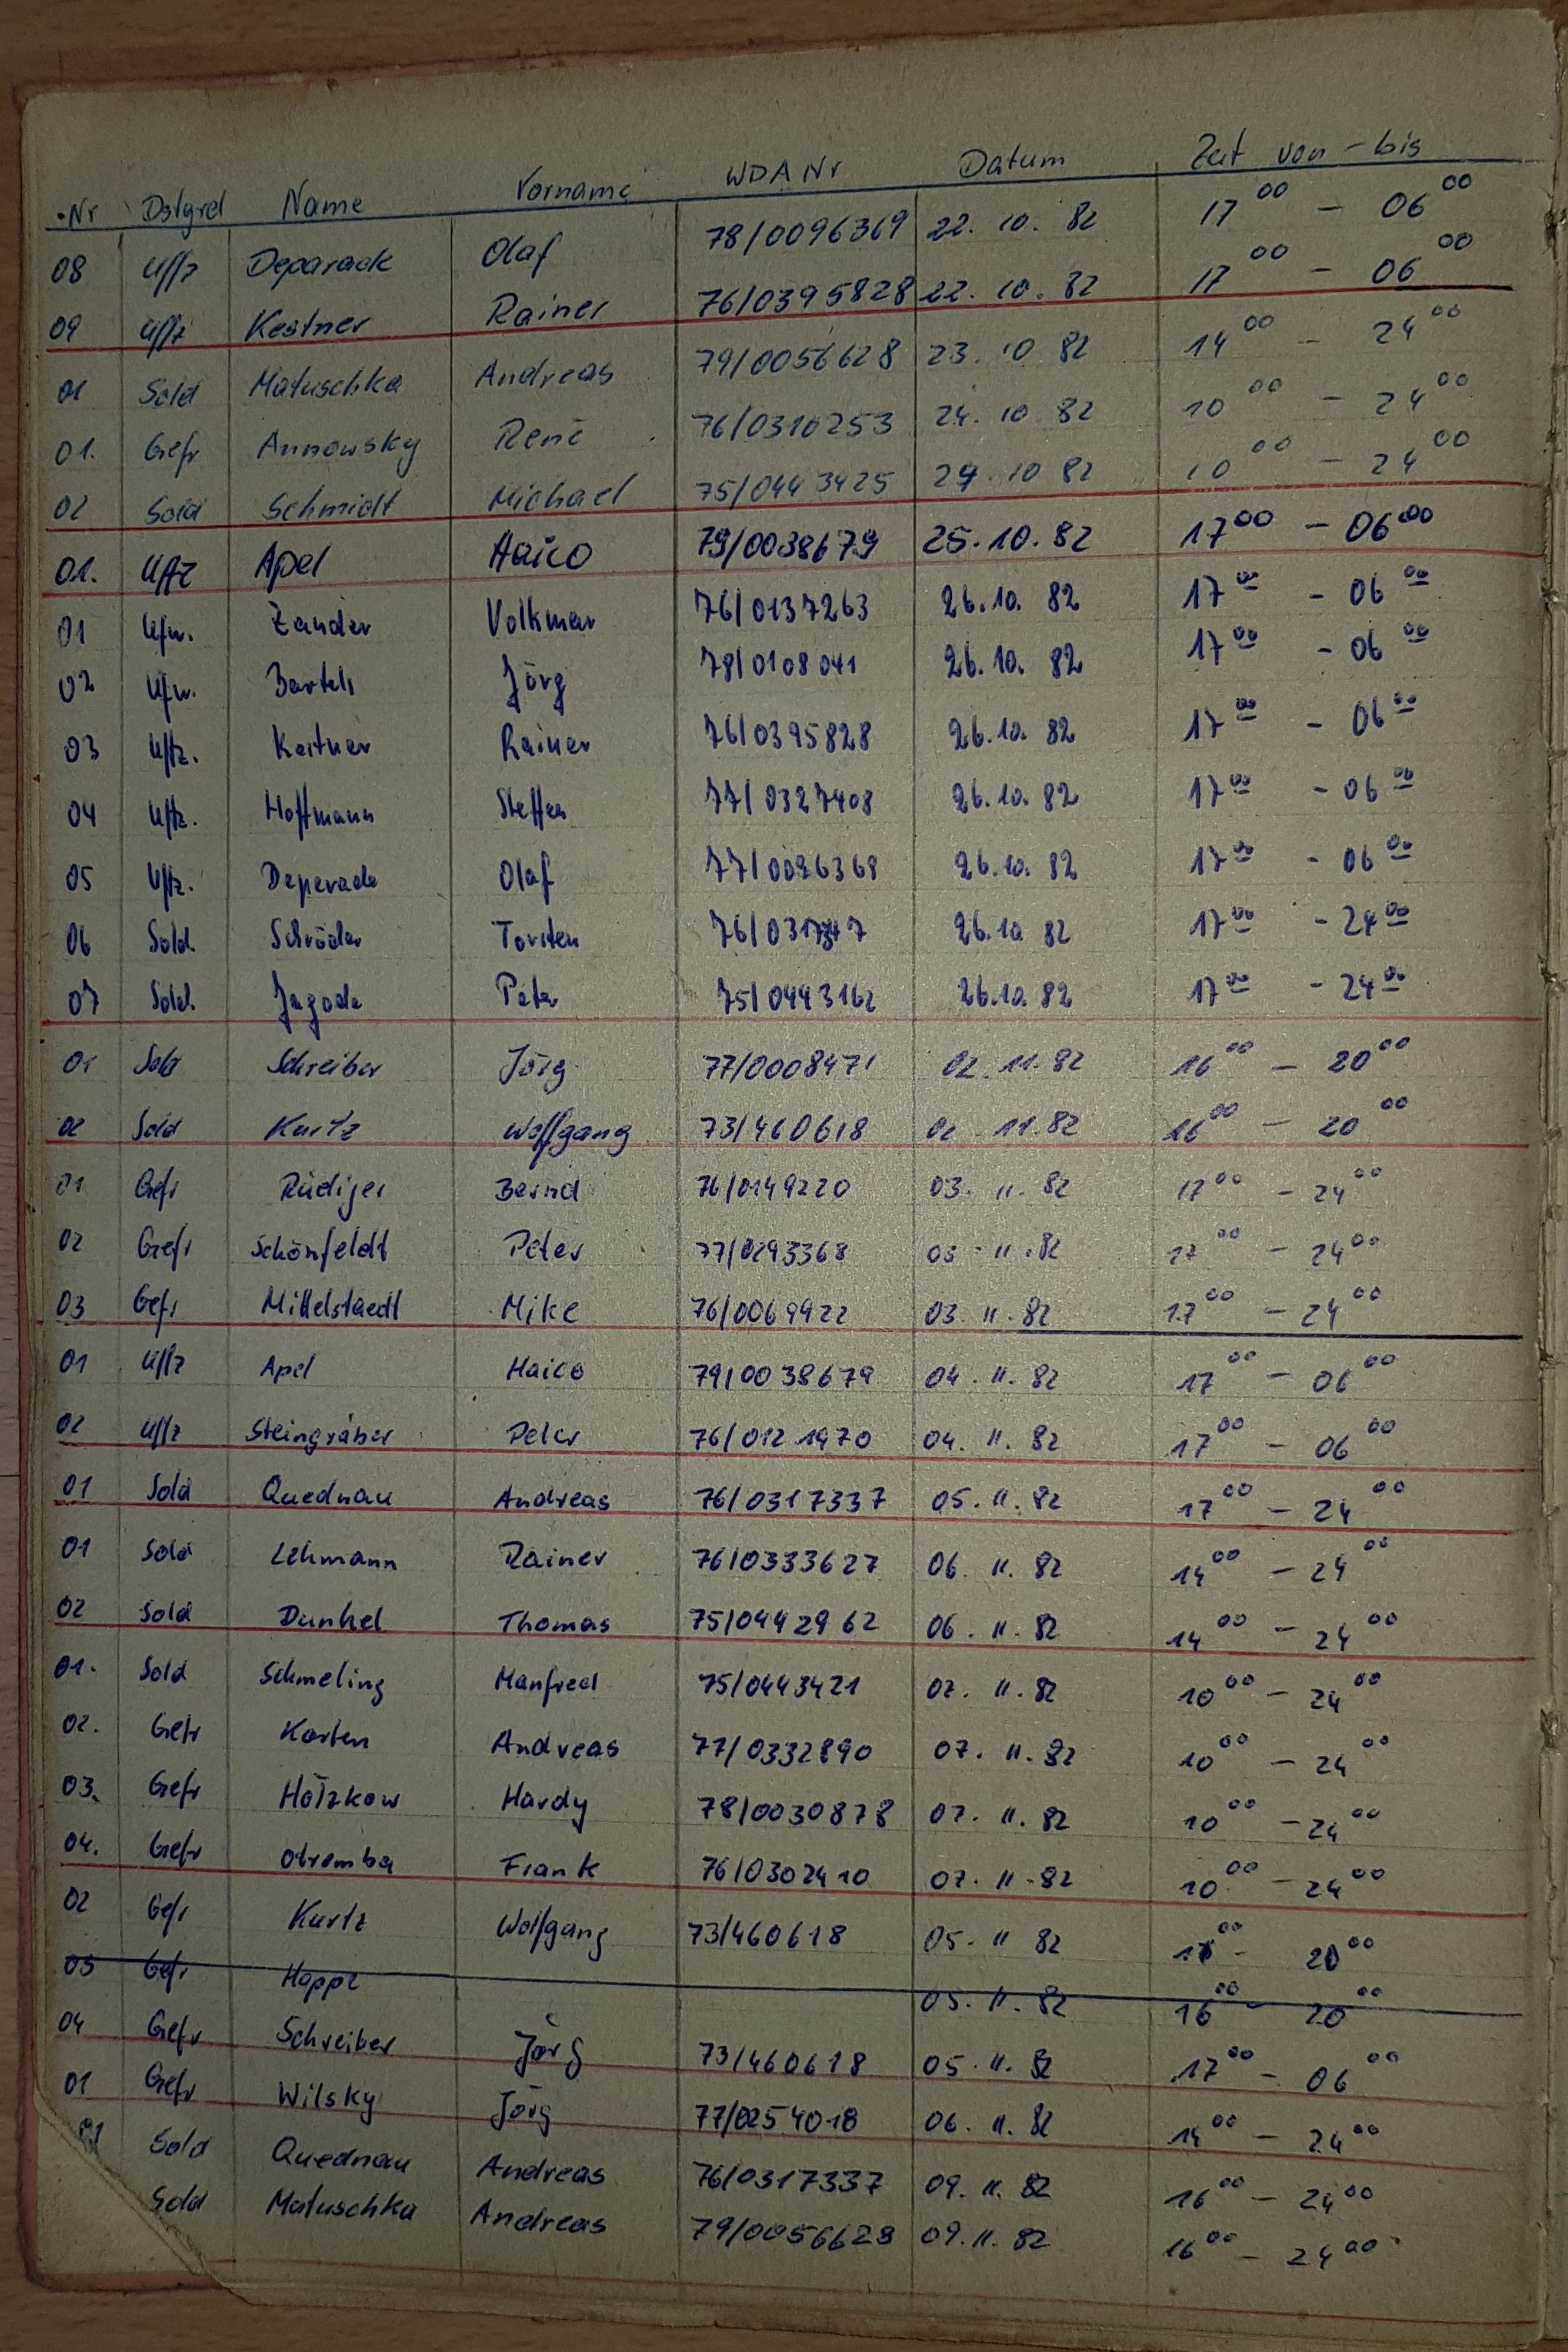 Nr Dstgrd Name Vorname WDA Nr Datum Zeit von - bis
08 Uffz Deparade Olaf 78/0096369 22. 10. 82 17 00 - 06 00
09 Uffz Kestner Rainer 76/0395828 22. 10. 82 17 00 - 06 00
01 Sold Matuschka Andreas 79/0056628 23. 10 82 14 00 - 24 00
01. Gefr Annowsky René 76/0310253 24. 10 82 10 00 - 24 00
02 Sold Schmidt Michael 75/0443425 24. 10 82 10 00 - 24 00
01. Uffz Apel Haico 79/0038679 25. 10. 82 17 00 - 06 00
01 Ufw. Zander Volkmar 76/0137263 26.10. 82 17 00 - 06 00
02 Ufw. Bartels Jörg 78/0108041 26.10. 82 17 00 - 06 00
03 Uffz. Kestner Rainer 76/0395828 26.10. 82 17 00 - 06 00
04 Uffz. Hoffmann Steffen 77/0327408 26.10. 82 17 00 - 06 00
05 Uffz. Deperade Olaf 77/0096369 26.10. 82 17 00 - 06 00
06 Sold. Schröder Torsten 26.10 82 17 00 - 24 00
07 Sold. Jagode Peter 75/0443162 26.10. 82 17 00 - 24 00
01 Sold Schreiber Jörg 77/0008471 02. 11. 82 16 00 - 20 00
02 Sold Kurtz Wolfgang 73/460618 02 11. 82 16 00 - 20 00
01 Gefr Rüdiger Bernd 76/0149220 03. 11. 82 17 00 - 24 00
02 Gefr Schönfeldt Peter 77/0293368 03. 11. 82 17 00 - 24 00
03 Gefr Mittelstaedt Mike 76/0069922 03. 11. 82 17 00 - 24 00
01 Uffz Apel Haico 79/0038679 04. 11. 82 17 00 - 06 00
02 Uffz Steingräber Peter 76/0121970 04. 11. 82 17 00 - 06 00
01 Sold Quednau Andreas 76/0317337 05. 11. 82 17 00 - 24 00
01 Sold Lehmann Rainer 76/0333627 06. 11. 82 14 00 - 24 00
02 Sold Dunkel Thomas 75/0442962 06. 11. 82 14 00 - 24 00
01. Sold Schmeling Manfred 75/0443421 07. 11. 82 10 00 - 24 00
02. Gefr Korten Andreas 77/0332890 07. 11. 82 10 00 - 24 00
03. Gefr Hölzkow Hardy 78/0030878 07. 11. 82 10 00 - 24 00
04. Gefr Otremba Frank 76/0302410 07. 11. 82 10 00 - 24 00
02 Gefr Kurtz Wolfgang 73/460618 05. 11 82 16 00 - 20 00
03 Gefr Hoppe 05. 11. 82 16 00 - 20 00
04 Gefr Schreiber Jörg 73/460618 05. 11. 82 17 00 - 06 00
01 Gefr Wilsky Jörg 77/0254018 06. 11. 82 14 00 - 24 00
01 Sold Quednau Andreas 76/0317337 09. 11. 82 16 00 - 24 00
Sold Matuschka Andreas 79/0056628 09. 11. 82 16 00 - 24 00